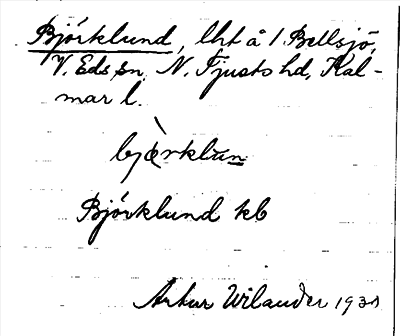 Björklund, lht å 1 Bellsjö,
V. Eds sn, N. Tjusts hd, Kal-
mar l.
bjò̤rklun
Björklund kb
Arthur Wilander 1930